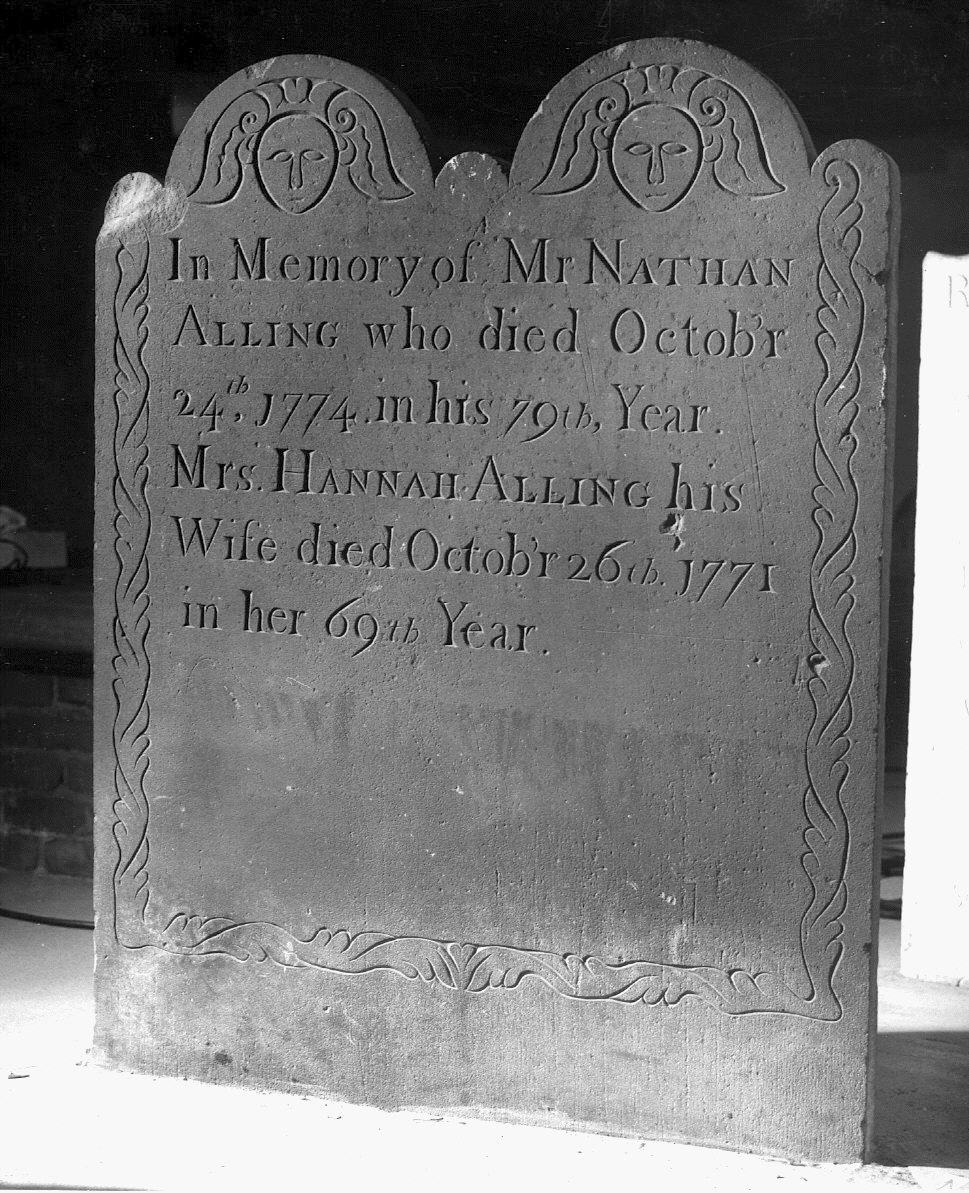 In Memory of Mr NATHAN
ALLING who died Octob'r
24th, 1774. in his 79th, Year.
Mrs. HANNAH ALLING his
Wife died Octob'r 26th. 1771
in her 69th Year.
R